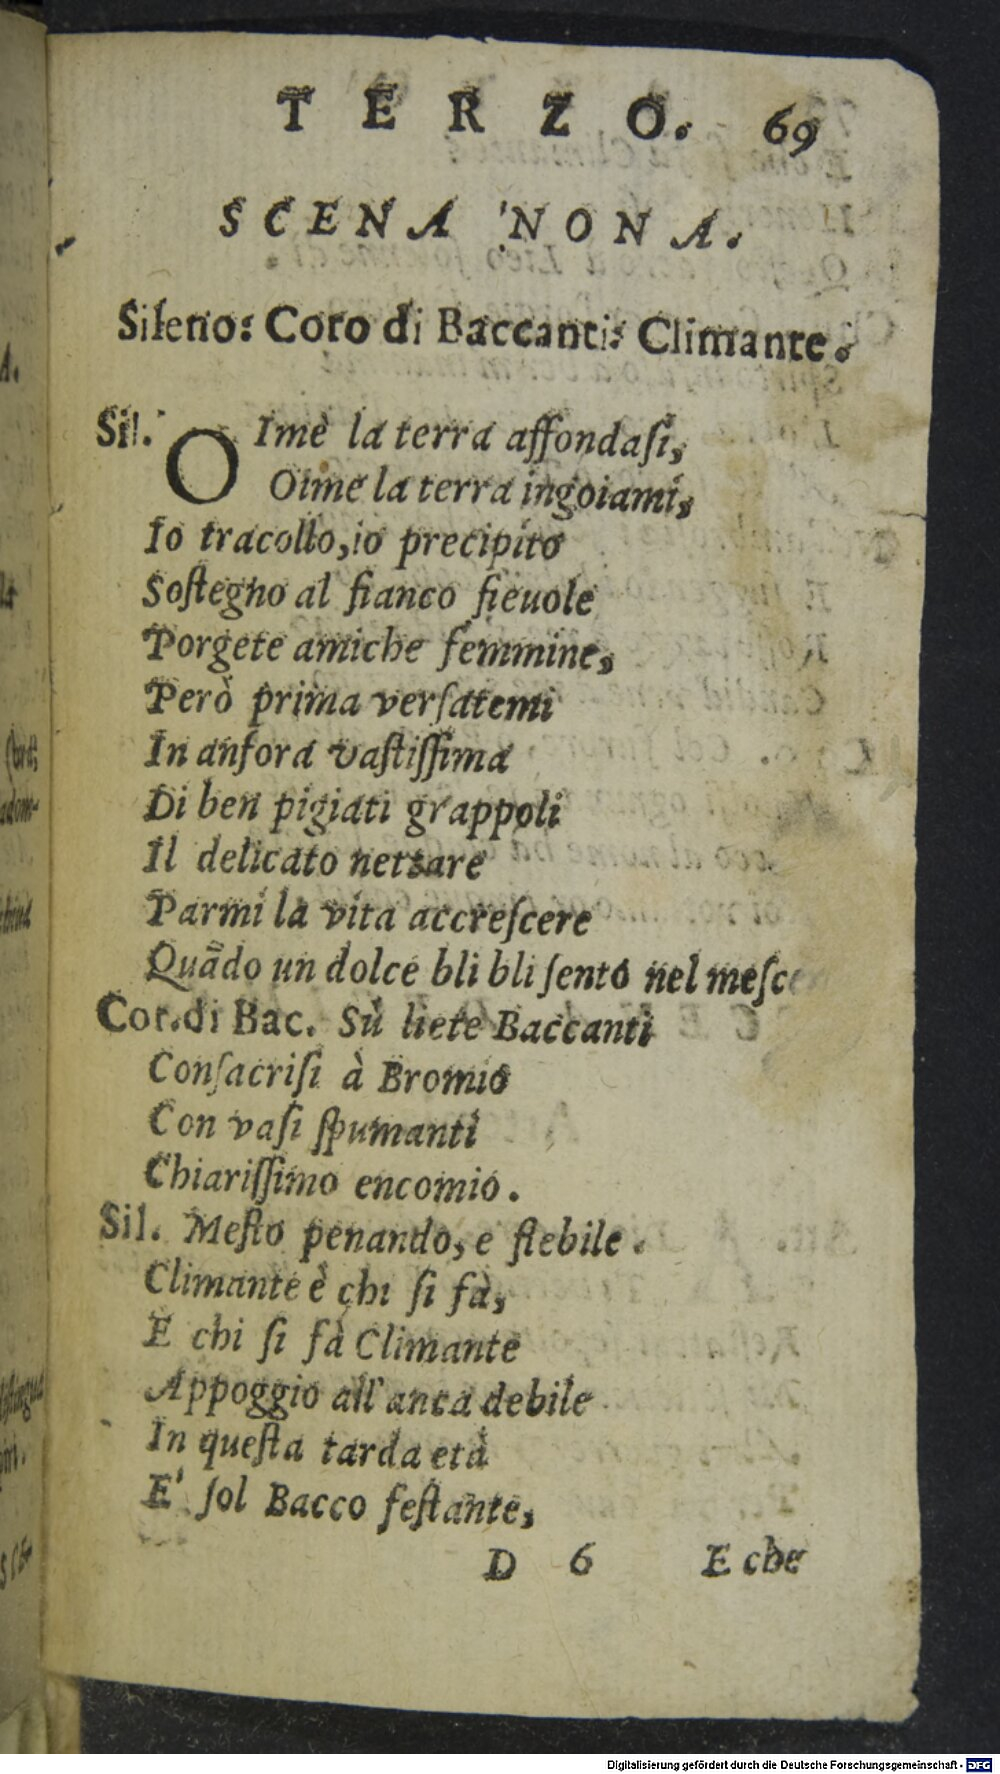 TERZO. 69
SCENA NONA.
Sileno: Coro di Baccanti: Climante.
Sil. OImè la terra affondaſi,
Oimè la terra ingoiami,
Io tracollo, io precipito
Soſtegno al fianco fieuole
Porgete amiche femmine,
Però prima verſatemi
In anfora vaſtiſſima
Di ben pigiati grappoli
Il delicato nettare
Parmi la vita accreſcere
Quãdo un dolce bli bli ſento nel meſce
Cor. di Bac. Sù liete Baccanti
Conſacriſi à Bromio
Con vaſi ſpumanti
Chiariſſimo encomio.
Sil. Meſto penando, e flebile.
Climante è chi ſi fà,
E chi ſi fà Climante
Appoggio all'anca debile
In queſta tarda età
E' ſol Bacco feſtante,
D 6 E che
Digitalisierung gefördert durch die Deutsche Forschungsgemeinschaft - DFG